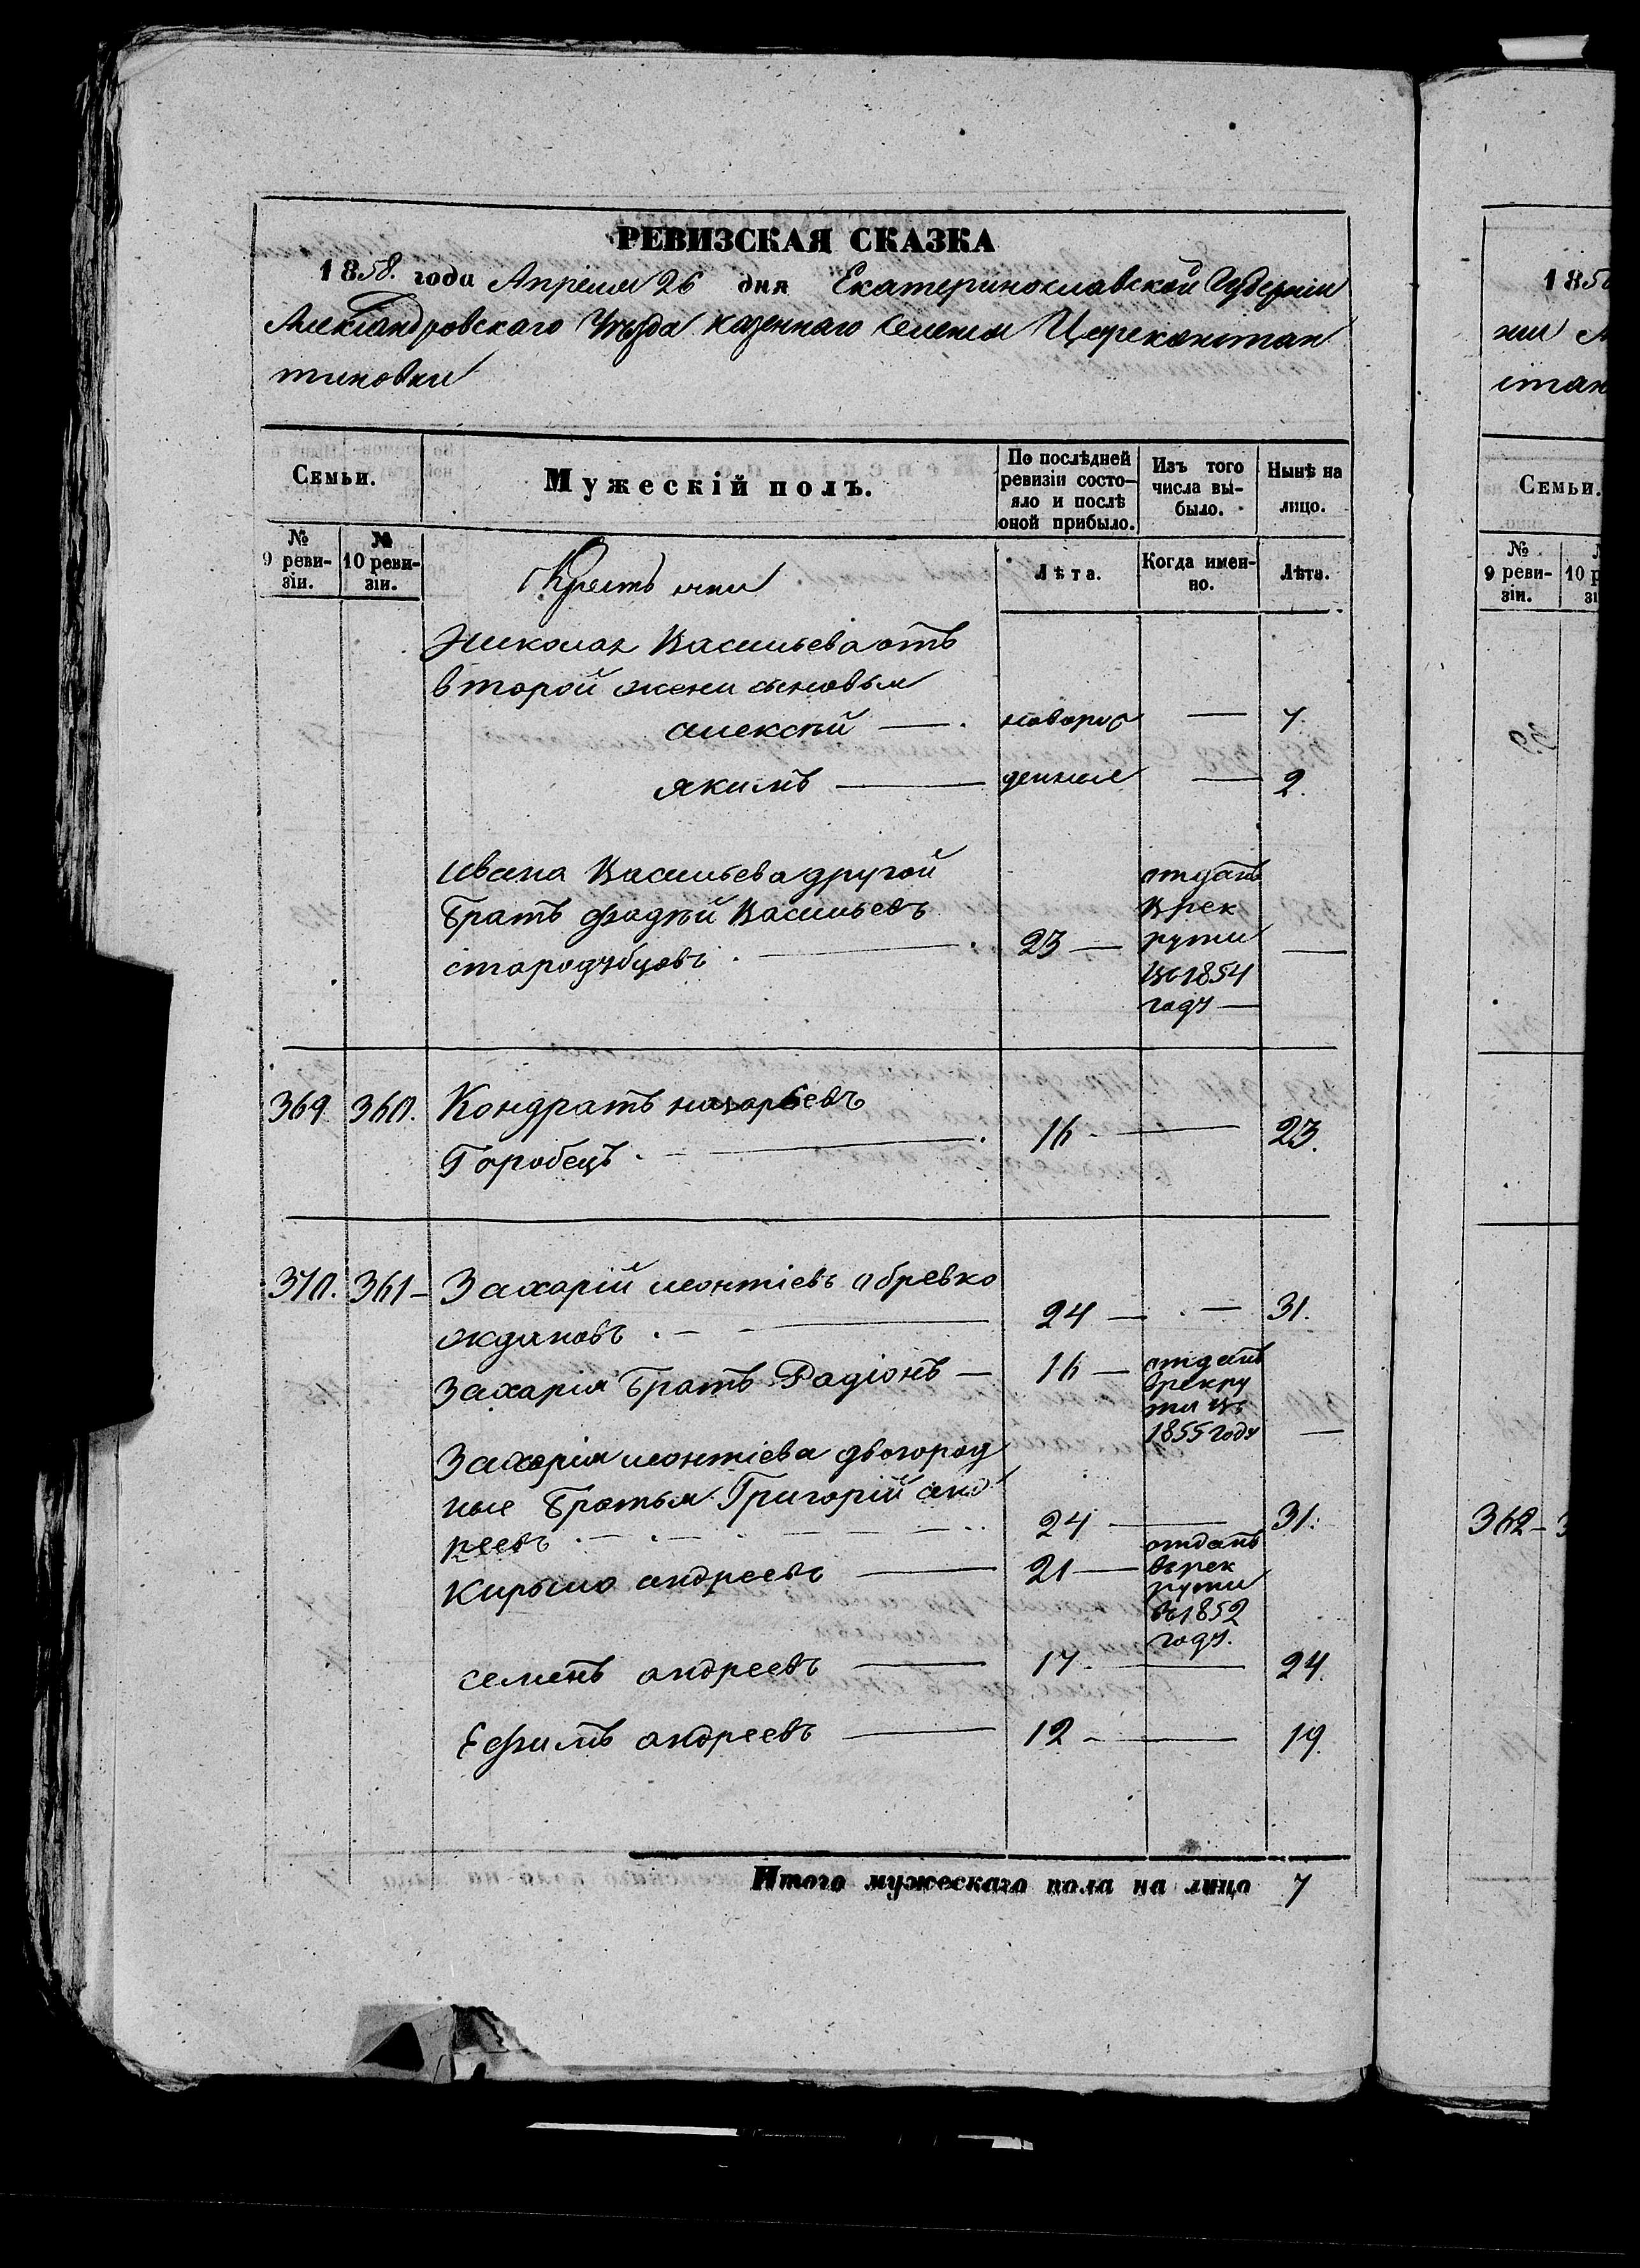 РЕВИЗСКАЯ СКАЗКА
1858. года Апреля 26 дня Екатеринославской Губернии
Александровского Уезда казеннаго селения Цареконстан
тиновки
Семьи.
Мужескій полъ.
По послѣдней ревизіи состо-яло и послѣ оной прибыло.
Изъ того числа вы-было.
Нынѣ на лицо.
№ 9 реви-зіи.
№ 10 реви-зіи.
Лѣта.
Когда имен-но.
Лѣта.
Николая Васильева отъ
второй жени сыновья
алексѣй — новорож — 7.
якимъ — денные — 2.
Ивана Васильева другой
братъ фадѣй Васильевъ
стародубцовъ. — 23 — отданъ
в рек
рути
въ 1854
году —
369. 360. Кондратъ назарьевъ
Горобецъ. — 16 — 23.
370. 361 — Захарій леонтіевъ
ждановъ. — 24 — 31.
Захарія братъ Радіонъ — 16 — отданъ
в рекру
ти въ
1855 году —
Захарія леонтіева двогород
ные братья Григорій анд
реевъ — 24 — 31.
Кирыло андреевъ — 21 — отданъ
въ рек
рути
въ 1852
году.
семенъ андреевъ — 17 — 24.
Ефимъ андреевъ — 12 — 19.
Итого мужескаго пола на лицо 7
185
стан
Семьи.
№ 9 реви-зіи.
362 —